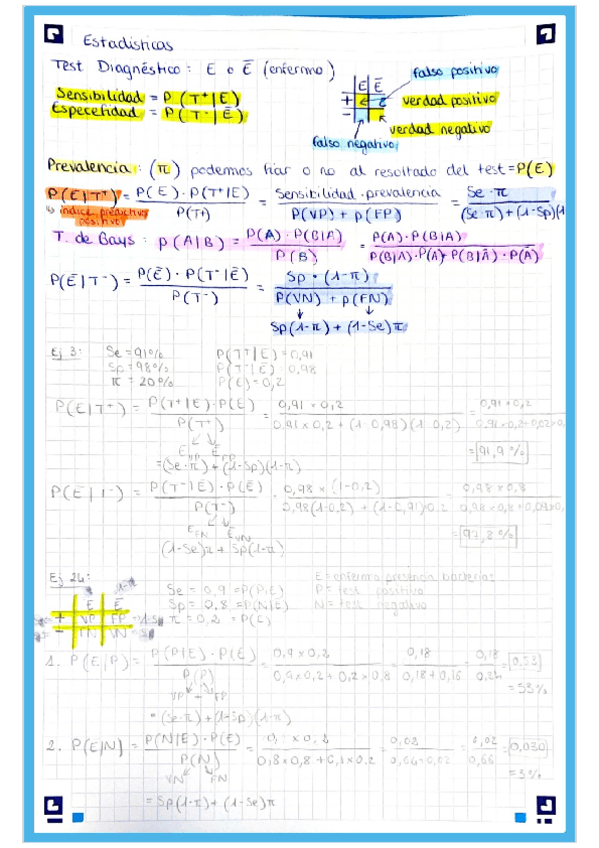 Estadísticas
Test Diagnóstico: E o Ē (enfermo)
E Ē
falso positivo
Sensibilidad = P(T⁺|E)
+
verdad positivo
Especefidad = P(T⁻|Ē)
-
verdad negativo
falso negativo
Prevalencia: (π) podemos fiar o no al resultado del test = P(E)
P(E|T⁺) = P(E)·P(T⁺|E) / P(T+) = Sensibilidad·prevalencia / P(VP) + p(FP) = Se·π / (Se·π)+(1-Sp)(1
↳ indice predictivo positivo
T. de Bays: p(A|B) = P(A)·P(B|A) / P(B) = P(A)·P(B|A) / P(B|A)·P(A)+P(B|Ā)·P(Ā)
P(Ē|T⁻) = P(Ē)·P(T⁻|Ē) / P(T⁻) = Sp·(1-π) / P(VN) + p(FN)
Sp(1-π) + (1-Se)π
Ej 3: Se = 91% P(T⁺|E) = 0,91
Sp = 98% P(T⁻|Ē) = 0,98
π = 20% P(E) = 0,2
P(E|T⁺) = P(T⁺|E)·P(E) / P(T⁺) = 0,91 × 0,2 / 0,91 × 0,2 + (1-0,98)(1-0,2) = 0,91 × 0,2
= 91,9%
= (Se·π) + (1-Sp)(1-π)
P(Ē|T⁻) = P(T⁻|Ē)·P(Ē) / P(T⁻) = 0,98 × (1-0,2) / 0,98(1-0,2) + (1-0,91)0,2 = 0,98 × 0,8
E FN Ē VN
= 97,8%
(1-Se)π + Sp(1-π)
Ej 24:
1-π
E Ē
+ VP FP
- FN VN
Se = 0,9 = P(P|E)
Sp = 0,8 = P(N|Ē)
π = 0,2 = P(E)
E = enfermo presencia bacterias
P = test positivo
N = test negativo
1. P(E|P) = P(P|E)·P(E) / P(P) = 0,9 × 0,2 / 0,9 × 0,2 + 0,2 × 0,8 = 0,18 / 0,18 + 0,16 = 0,18 / 0,34 = 0,53
VP + FP
= 53%
= (Se·π) + (1-Sp)(1-π)
2. P(E|N) = P(N|E)·P(E) / P(N) = 0,1 × 0,2 / 0,8 × 0,8 + 0,1 × 0,2 = 0,02 / 0,64 + 0,02 = 0,02 / 0,66 = 0,030
VN FN
= 3%
= Sp(1-π) + (1-Se)π